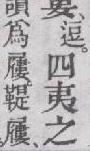 婁、逗。四夷之
讀為屨。鞮屨、